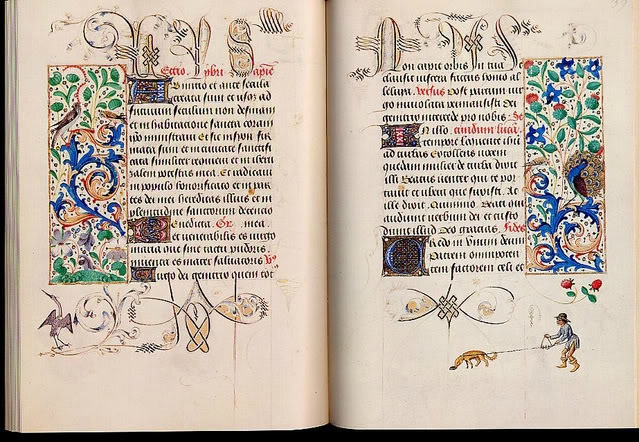 Lectio. libri sapie
Ab initio et ante secula
creata sum et usq ad
futurum seculum non desinam
et in habitatione sancta coram
ipso ministravi. Et sic in syon fir
mata sum et in civitate sanctifi
cata similiter requievi et in iheru
salem potestas mea. Et radicavi
in populo honorificato et in par
tes dei mei hereditas illius et in
plenitudine sanctorum detencio
Benedicta. Gr. mea.
et venerabilis es virgo
maria que sine tactu pudoris
inventa es mater salvatoris. Vs
Virgo dei genitrix quem tot
Non capit orbis in tua
clausit viscera factus homo al
leluya. Versus Post partum vir
go inviolata permansisti Dei
genitrix intercede pro nobis. Se
In illo. cundum lucam
tempore loquente ihu
ad turbas Extollens vocem
quedam mulier de turba dixit
illi Beatus venter qui te por
tavit et ubera que suxisti. At
ille dixit. Quinimo. Beati qui
audiunt verbum dei et custo
diunt illud Deo gracias. Fides
Credo in Unum deum
Patrem omnipoten
tem factorem celi et